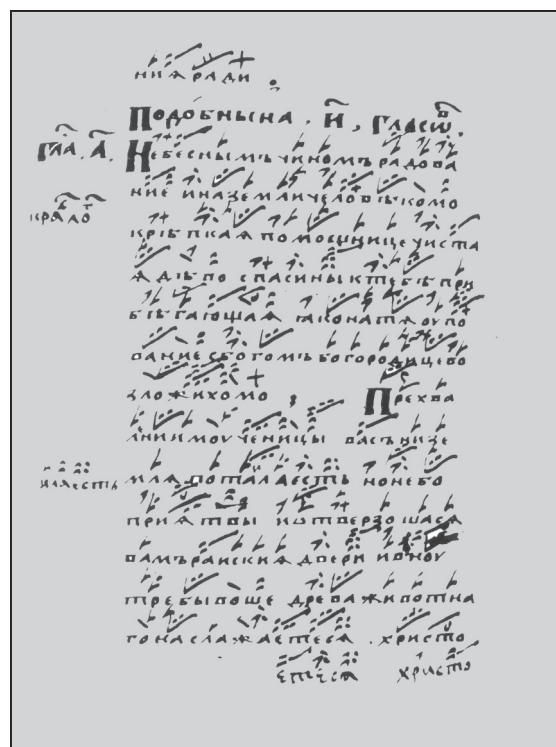 ниѧ ради .
Подобны на . И҃ , гласѡ҃ .
Гла҃ . А҃ . Небеснымъ чиномъ радова
ние и на земли человѣкомо
крѣпкаѧ помощнице чиста
ѧ дѣпо спасины к тебѣ при
бѣгающаѧ ꙗко на тѧ оупо
вание с богомъ богородицево
зложихомо : Прехва
лнии моученицы васъ ни зе
млѧ потаила есть но небо
приѧт вы и отверзошасѧ
вамъ раискиѧ двери и вноу
трь бывоше древа животна
го наслажаетесѧ . христо
христо